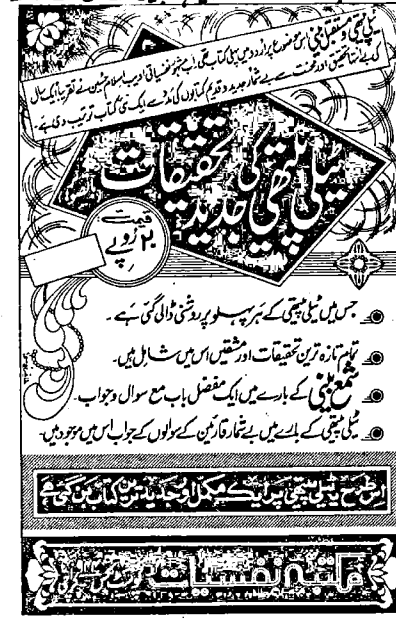 ٹیلی پیتھی و مستقبل بینی اس موضوع پر اردو میں پہلی کتاب تھی، اب مشہور نفسیاتی ادیب اسلام حسین نے تقریباً ایک سال
کی بے انتہا تحقیق اور محنت سے بے شمار جدید و قدیم کتابوں کی مدد سے ایک نئی کتاب ترتیب دی ہے
ٹیلی پیتھی کی جدید تحقیقات
قیمت
۲۰ روپے
جس میں ٹیلی پیتھی کے ہر پہلو پر روشنی ڈالی گئی ہے۔
تمام تازہ ترین تحقیقات اور مشقیں اس میں شامل ہیں۔
شمع بینی کے بارے میں ایک مفصل باب مع سوال و جواب۔
ٹیلی پیتھی کے بارے میں بے شمار قارئین کے سوالوں کے جواب اس میں موجود ہیں۔
اس طرح یہ ٹیلی پیتھی پر ایک مکمل اور جدید ترین کتاب بن گئی ہے
مکتبہ نفسیات